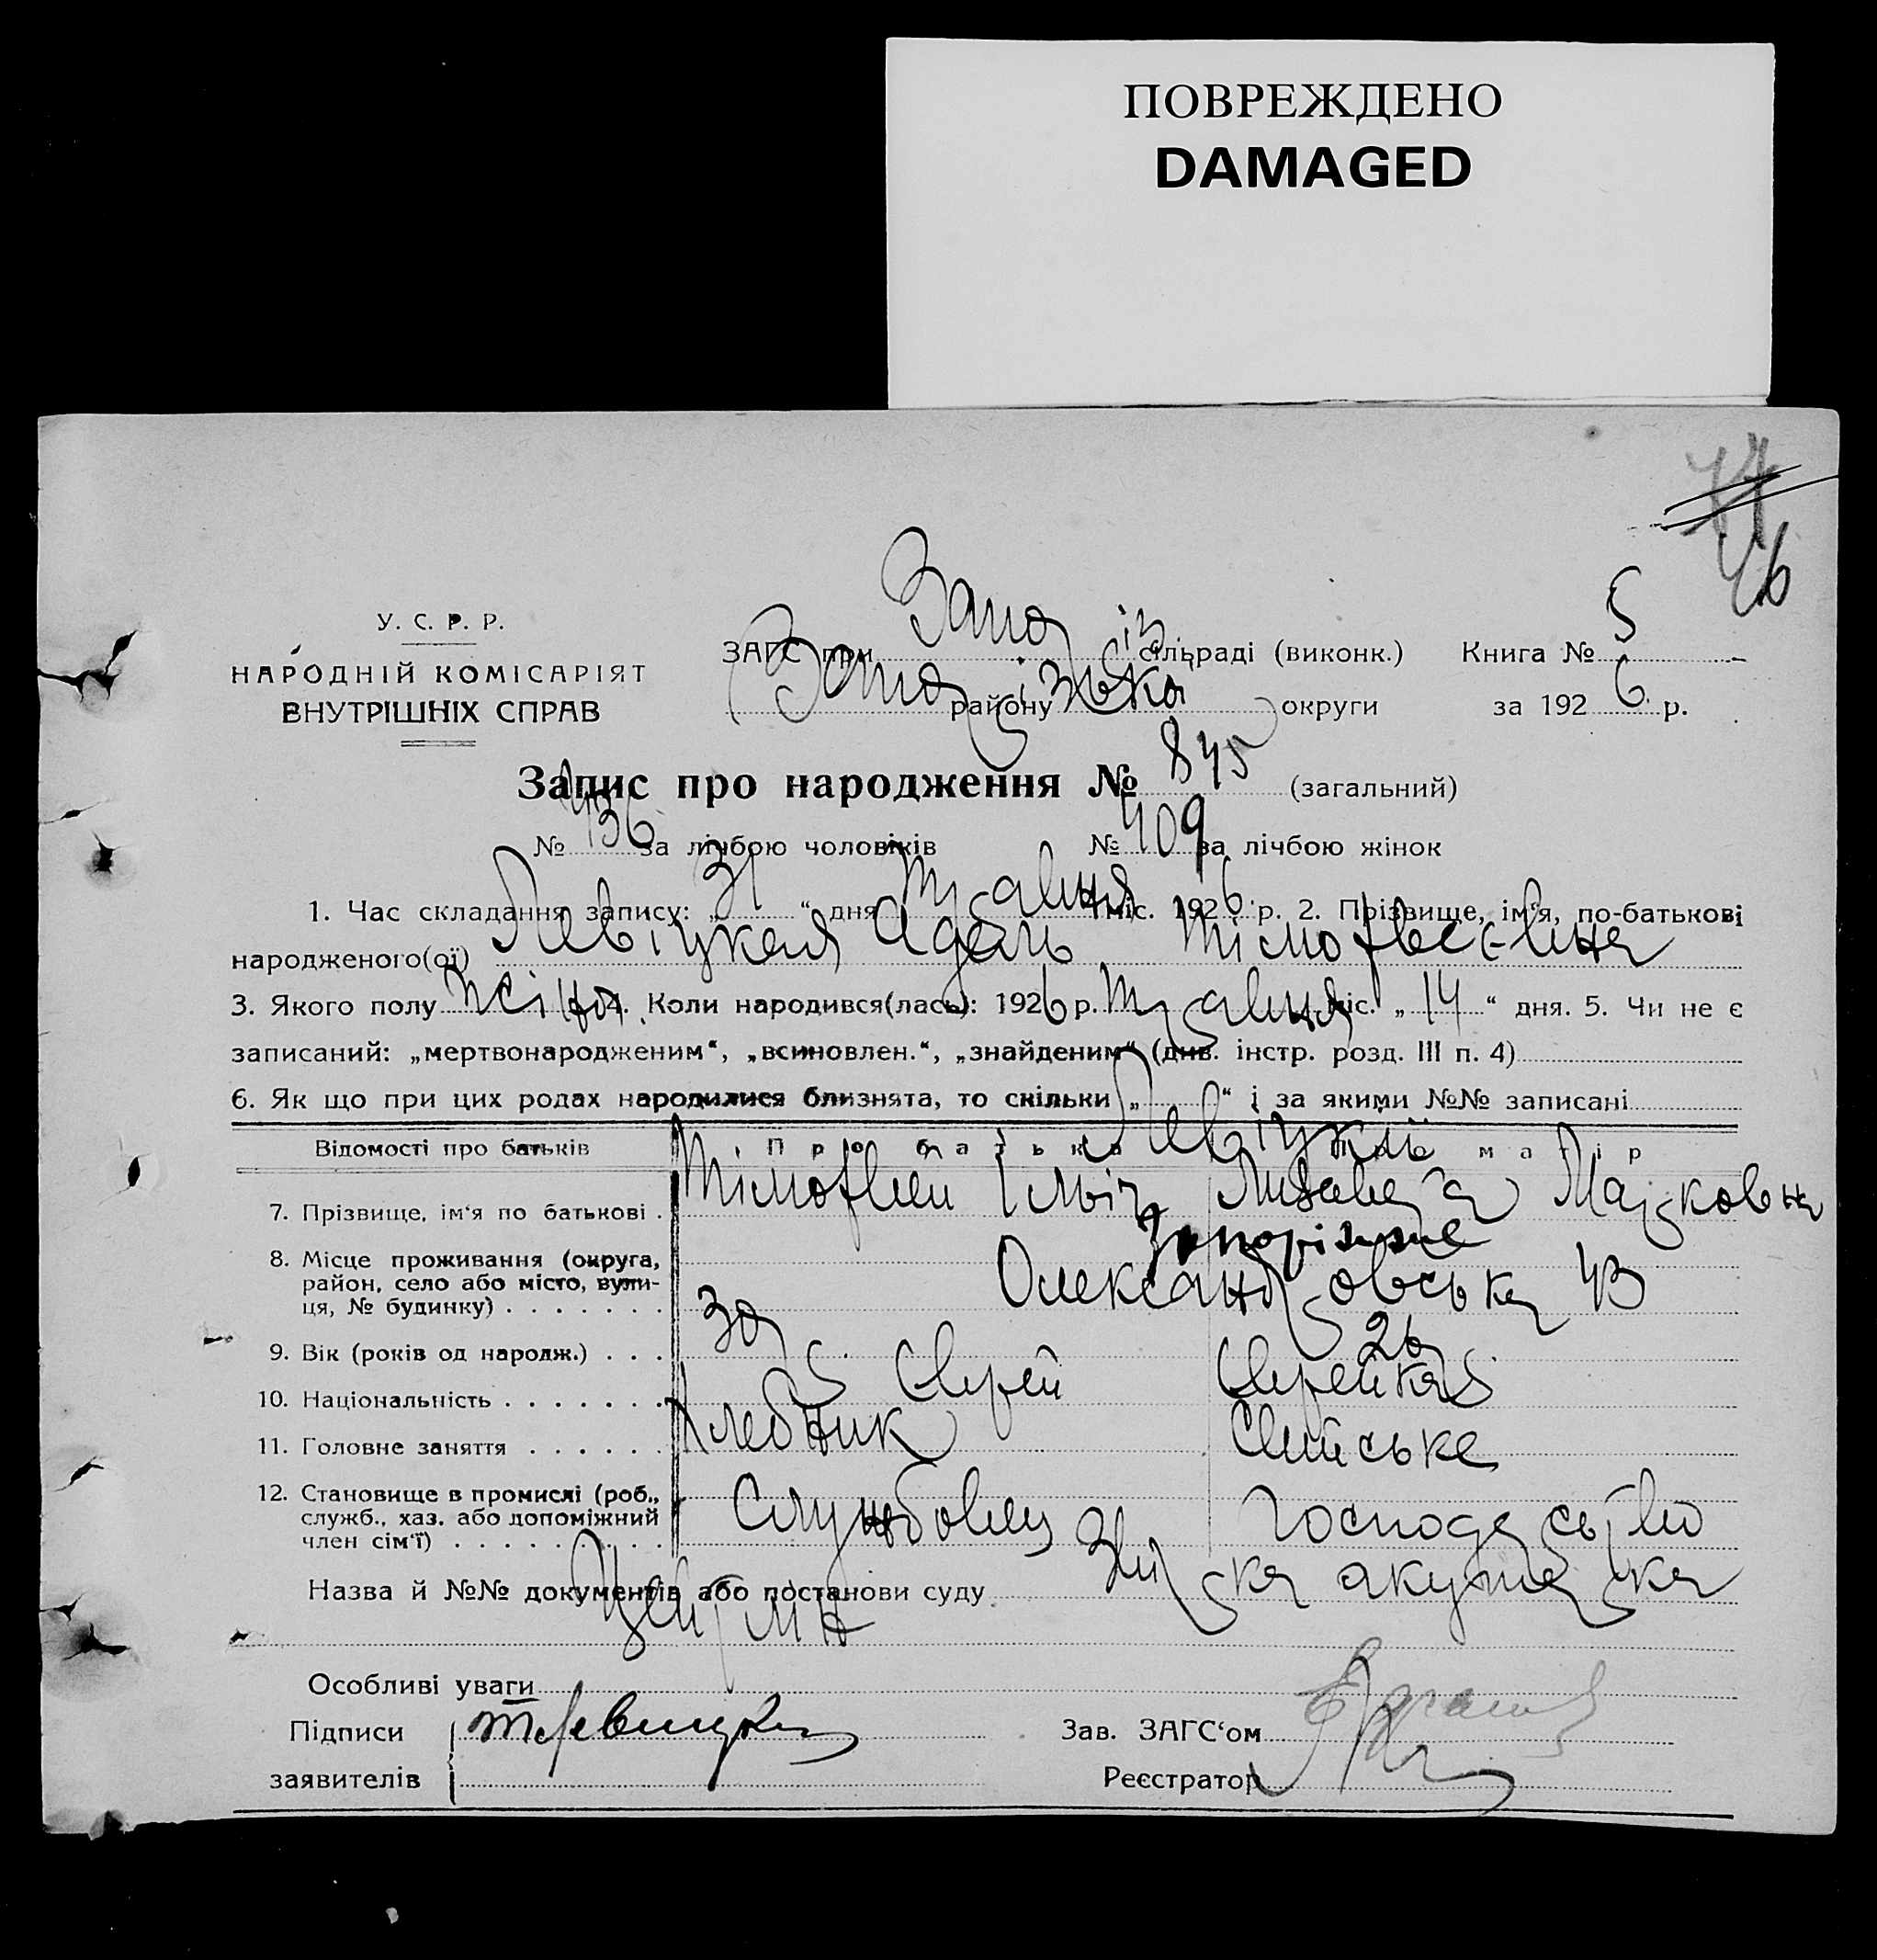 ПОВРЕЖДЕНО
DAMAGED
46
У. С. Р. Р.
НАРОДНІЙ КОМІСАРІЯТ
ВНУТРІШНІХ СПРАВ
ЗАГС при сільраді (виконк.) Книга № 5
району округи за 1926 р.
Запис про народження № 845 (загальний)
№ 436 за лічбою чоловіків № 409 за лічбою жінок
1. Час складання запису: „31“ дня травня міс. 1926 р. 2. Прізвище, ім'я, по-батькові
народженого(ої) Левіцкая Адель Тімофеєвна
3. Якого полу жіноч. 4. Коли народився(лась): 1926 р. травня міс. „14“ дня. 5. Чи не є
записаний: „мертвонародженим“, „всиновлен.“, „знайденим“ (див. інстр. розд. III п. 4)
6. Як що при цих родах народилися близнята, то скільки „ “ і за якими №№ записані
Левіцкій
Відомості про батьків Про батька Про матір
7. Прізвище, ім'я по батькові . Тімофей Ільіч Лизавета Марковна
8. Місце проживання (округа, Запоріжжє
район, село або місто, вули- Олександровська 43
ця, № будинку) . . . . . . .
9. Вік (років од народж.) . . . 30 26
10. Національність . . . . . . . Єврей Єврейка
11. Головне заняття . . . . . . Хлебник Сімйське
12. Становище в промислі (роб., Службовец господарство
служб., хаз. або допоміжний
член сім'ї) . . . . . . . . .
Назва й №№ документів або постанови суду акушерка
Особливі уваги
Підписи Т Левицкий Зав. ЗАГС'ом
заявителів Реєстратор